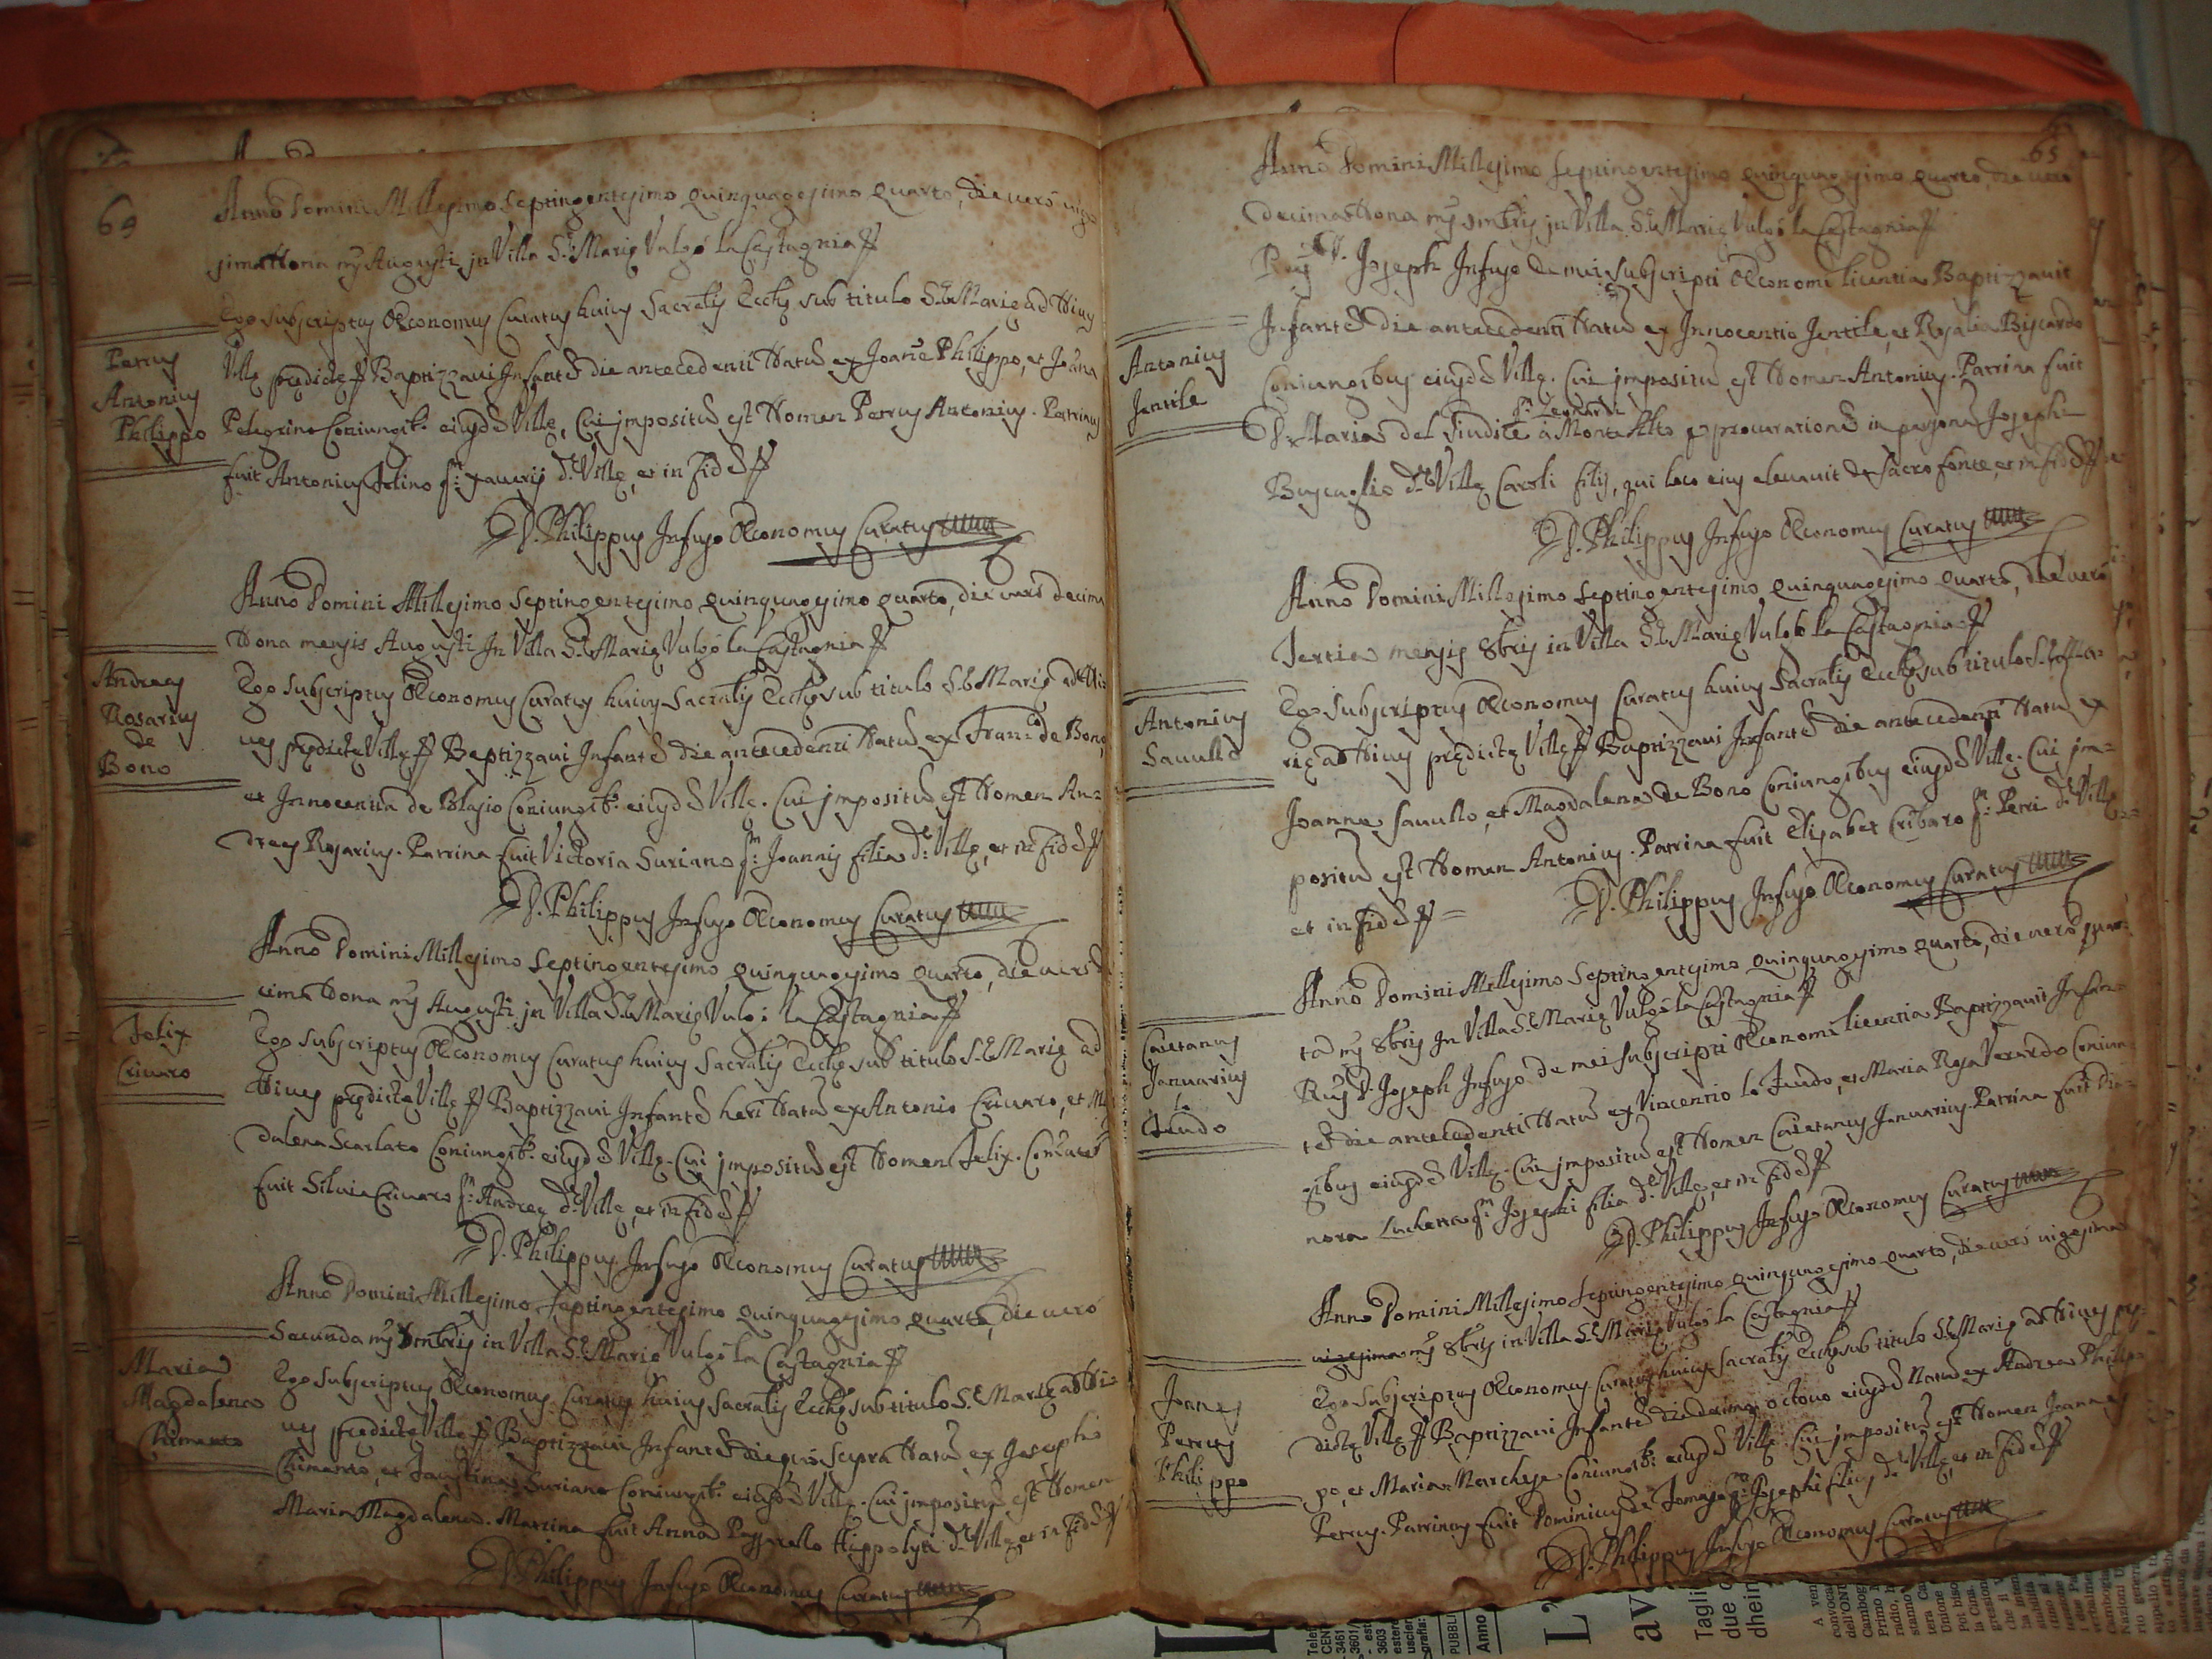 64
Anno Domini Millesimo Septingentesimo quinquagesimo quarto, die vero vige
simaNona m̃s Augusti in Villa S.te Marię Vulgò la Castagnia
Ego subscriptus Œconomus Curatus huius Sacralis Eccłę sub titulo S.tę Marię ad Nives
Petrus
Antonius
Philippo
Villę prędictę Baptizzavi Infantẽ die antecedenti Natũ ex Joane Philippo, et Joãna
Pelegrino Coniugib: eiusdẽ Villę, Cui impositũ est Nomen Petrus Antonius. Patrinus
fuit Antonius Felino q: Xaverij d. Villę, et in fidẽ
D. Philippus Infuso Œconomus Curatus
Anno Domini Millesimo Septingentesimo quinquagesimo quarto, die vero decima
Nona mensis Augusti In Villa S.tę Marię Vulgò la Castagnia
Andreas
Rosarius
de
Bono
Ego subscriptus Œconomus Curatus huius Sacralis Eccłę sub titulo S.tę Marię ad Ni
ves prędictę Villę Baptizzavi Infantẽ die antecedenti Natũ ex Fran.co de Bono,
et Innocentia de Blasio Coniugib: eiusdẽ Villę. Cui impositũ est Nomen An=
dreas Rosarius. Patrina fuit Victoria Suriano q.m Joannis filia d. Villę, et in fidẽ
D. Philippus Infuso Œconomus Curatus
Anno Domini Millesimo Septingentesimo quinquagesimo quarto, die vero de
cima Nona m̃s Augusti in Villa S.tę Marię Vulgò la Castagnia
Felix
Crivaro
Ego subscriptus Œconomus Curatus huius Sacralis Eccłę sub titulo S.tę Marię ad
Nives prędictę Villę Baptizzavi Infantẽ heri Natũ ex Antonio Crivaro, et Ma
dalena Scarlato Coniugib: eiusdẽ Villę. Cui impositũ est Nomen Felix.
fuit Silvia Crivaro q: Andreę d. Villę, et in fidẽ
D. Philippus Infuso Œconomus Curatus
Anno Domini Millesimo Septingentesimo quinquagesimo quarto, die vero
Secunda m̃s 7mbris in Villa S.tę Marię Vulgò la Castagnia
Maria
Magdalena
Chimento
Ego subscriptus Œconomus Curatus huius Sacralis Eccłę sub titulo S.tę Marię ad Ni=
ves prędictę Villę Baptizzavi Infantẽ die quò supra Natũ ex Josepho
Chimento, et Faustina Suriano Coniugib: eiusdẽ Villę. Cui impositũ est Nomen
Maria Magdalena. Matrina fuit Anna Hippolyti d. Villę, et in fidẽ
D. Philippus Infuso Œconomus Curatus
65
Anno Domini Millesimo Septingentesimo quinquagesimo quarto, die vero
decimaNona m̃s 7mbris in Villa S.tę Marię Vulgò la Castagnia
R.dus D. Joseph Infuso de mei subscripti Œconomi licentia Baptizzavit
Antonius
Jentile
Infantẽ die antecedenti Natũ ex Innocentio Jentile, et Rosalia Biscardo
Coniugibus eiusdẽ Villę. Cui impositũ est Nomen Antonius. Patrina fuit
D. Maria del Giudice q.m Leonardi à Monte Alto procurationẽ in personã Josephi
Buscaglio d. Villę Caroli filij, qui loco eius elevavit de Sacro fonte, et in fidẽ
D. Philippus Infuso Œconomus Curatus
Anno Domini Millesimo Septingentesimo quinquagesimo quarto, die vero
Tertia mensis 8bris in Villa S.tę Marię Vulgò la Castagnia
Antonius
Sauullo
Ego subscriptus Œconomus Curatus huius Sacralis Eccłę sub titulo S.tę Ma=
rię ad Nives prędictę Villę Baptizzavi Infantẽ die antecedenti Natũ ex
Joanne Sauullo, et Magdalena de Bono Coniugibus eiusdẽ Villę. Cui im=
positũ est Nomen Antonius. Patrina fuit Elisabet Cribaro q.m Petri d. Villę
et in fidẽ =
D. Philippus Infuso Œconomus Curatus
Anno Domini Millesimo Septingentesimo quinquagesimo quarto, die vero quar
ta m̃s 8bris In Villa S.tę Marię Vulgò la Castagnia
Caietanus
Januarius
lo
Feudo
R.dus D. Joseph Infuso de mei subscripti Œconomi licentia Baptizzavit Infan=
tẽ die antecedenti Natũ ex Vincentio lo Feudo, et Maria Rosa Verardo Coniu
gibus eiusdẽ Villę. Cui impositũ est Nomen Caietanus Januarius. Patrina fuit Dia=
nora Luchetta q.m Josephi filia d. Villę, et in fidẽ
D. Philippus Infuso Œconomus Curatus
Anno Domini Millesimo Septingentesimo quinquagesimo quarto, die vero vigesima
m̃s 8bris in Villa S.tę Marię Vulgò la Castagnia
Joannes
Petrus
Philippo
Ego subscriptus Œconomus Curatus huius Sacralis Eccłę sub titulo S.tę Marię ad Nives prę=
dictę Villę Baptizzavi Infantẽ die decimo octavo eiusdẽ Natũ ex Andrea Philip
po, et Maria Marchese Coniugib: eiusdẽ Villę. Cui impositũ est Nomen Joannes
Petrus. Patrinus fuit Dominicus de Tomaso q.m Josephi filius d. Villę, et in fidẽ
D. Philippus Infuso Œconomus Curatus